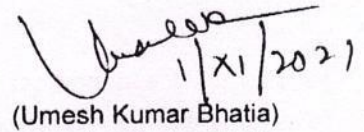 Umesh
1/XI/2021
(Umesh Kumar Bhatia)